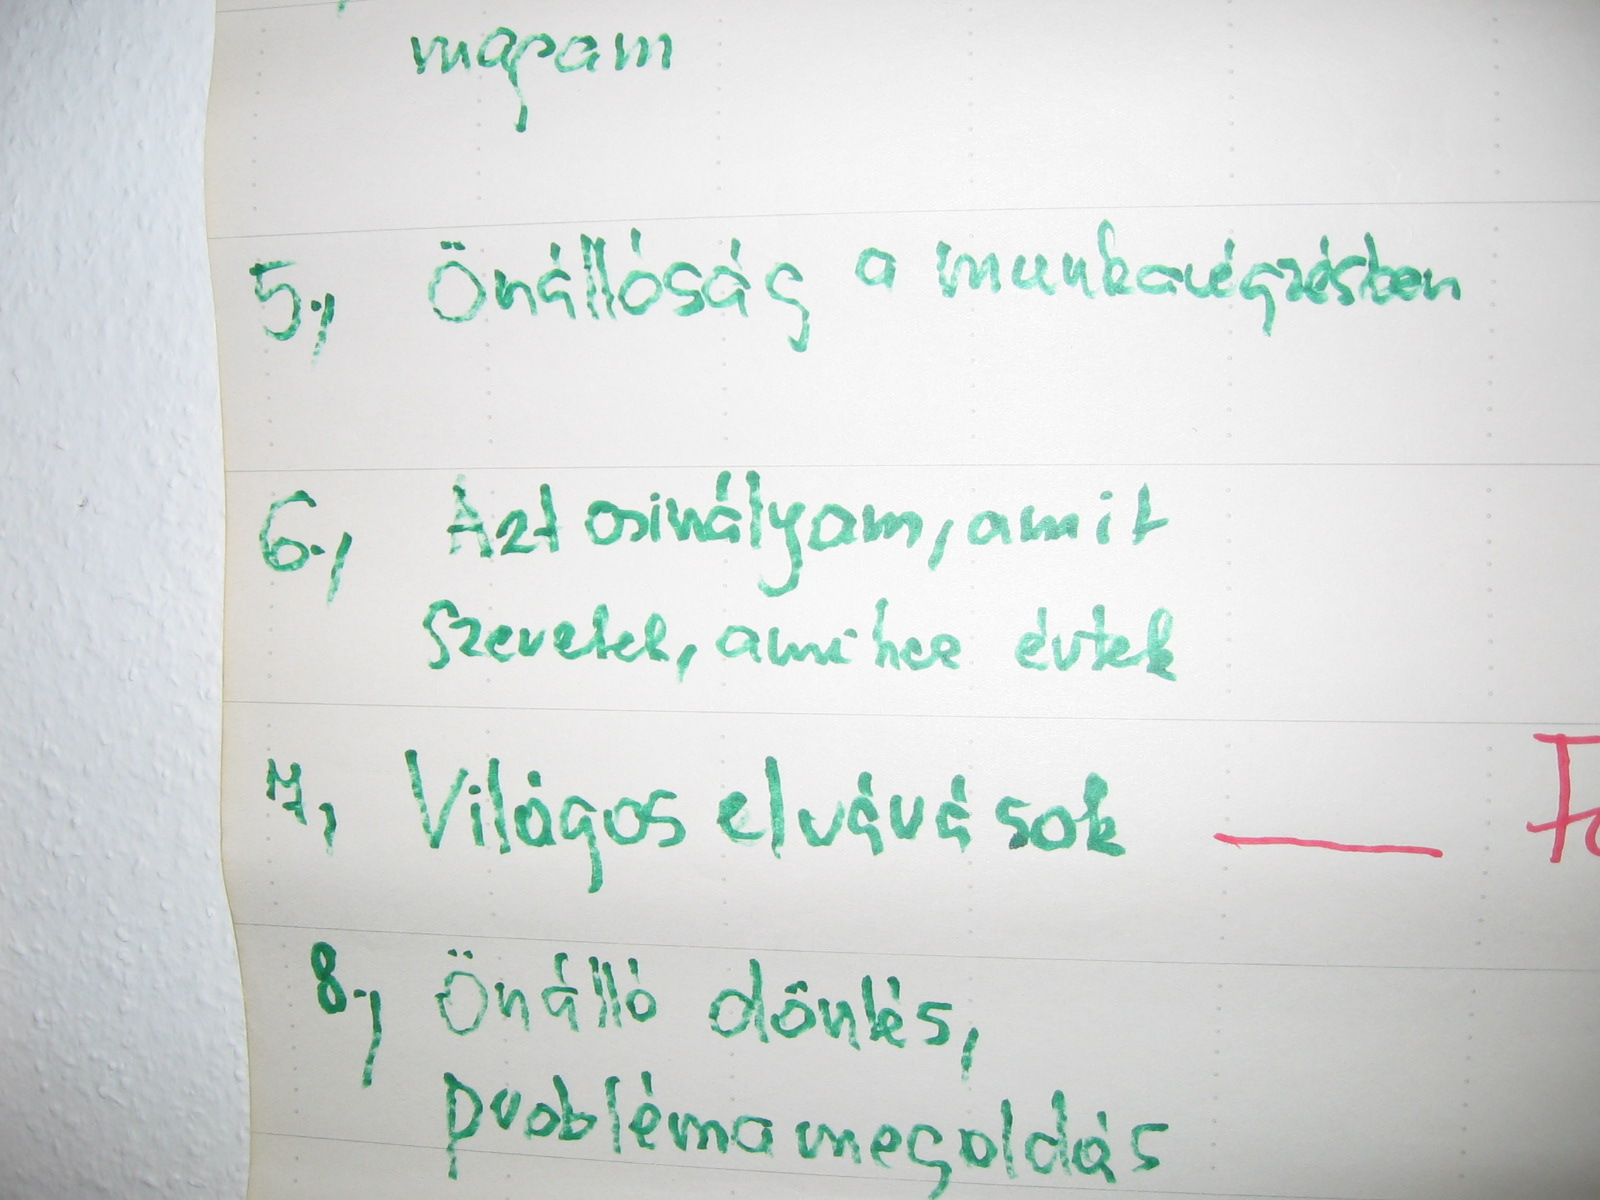 magam
5., Önállóság a munkavégzésben
6., Azt csinályam, amit
szeretek, amihez értek
7., Világos elvárások —
8., Önálló döntés,
problémamegoldás